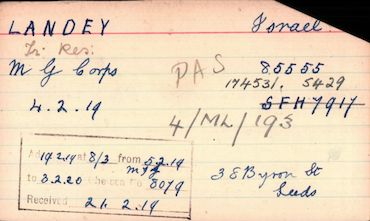 LANDEY Israel
Tr. Res.
M G Corps PAS 85555
174531/. 5429
4.2.19 SFH7917
4/ML/193
at 8/3 from 5.2.19
to 3.2.20 8079
Received 21.2.19
38 Byron St
Leeds